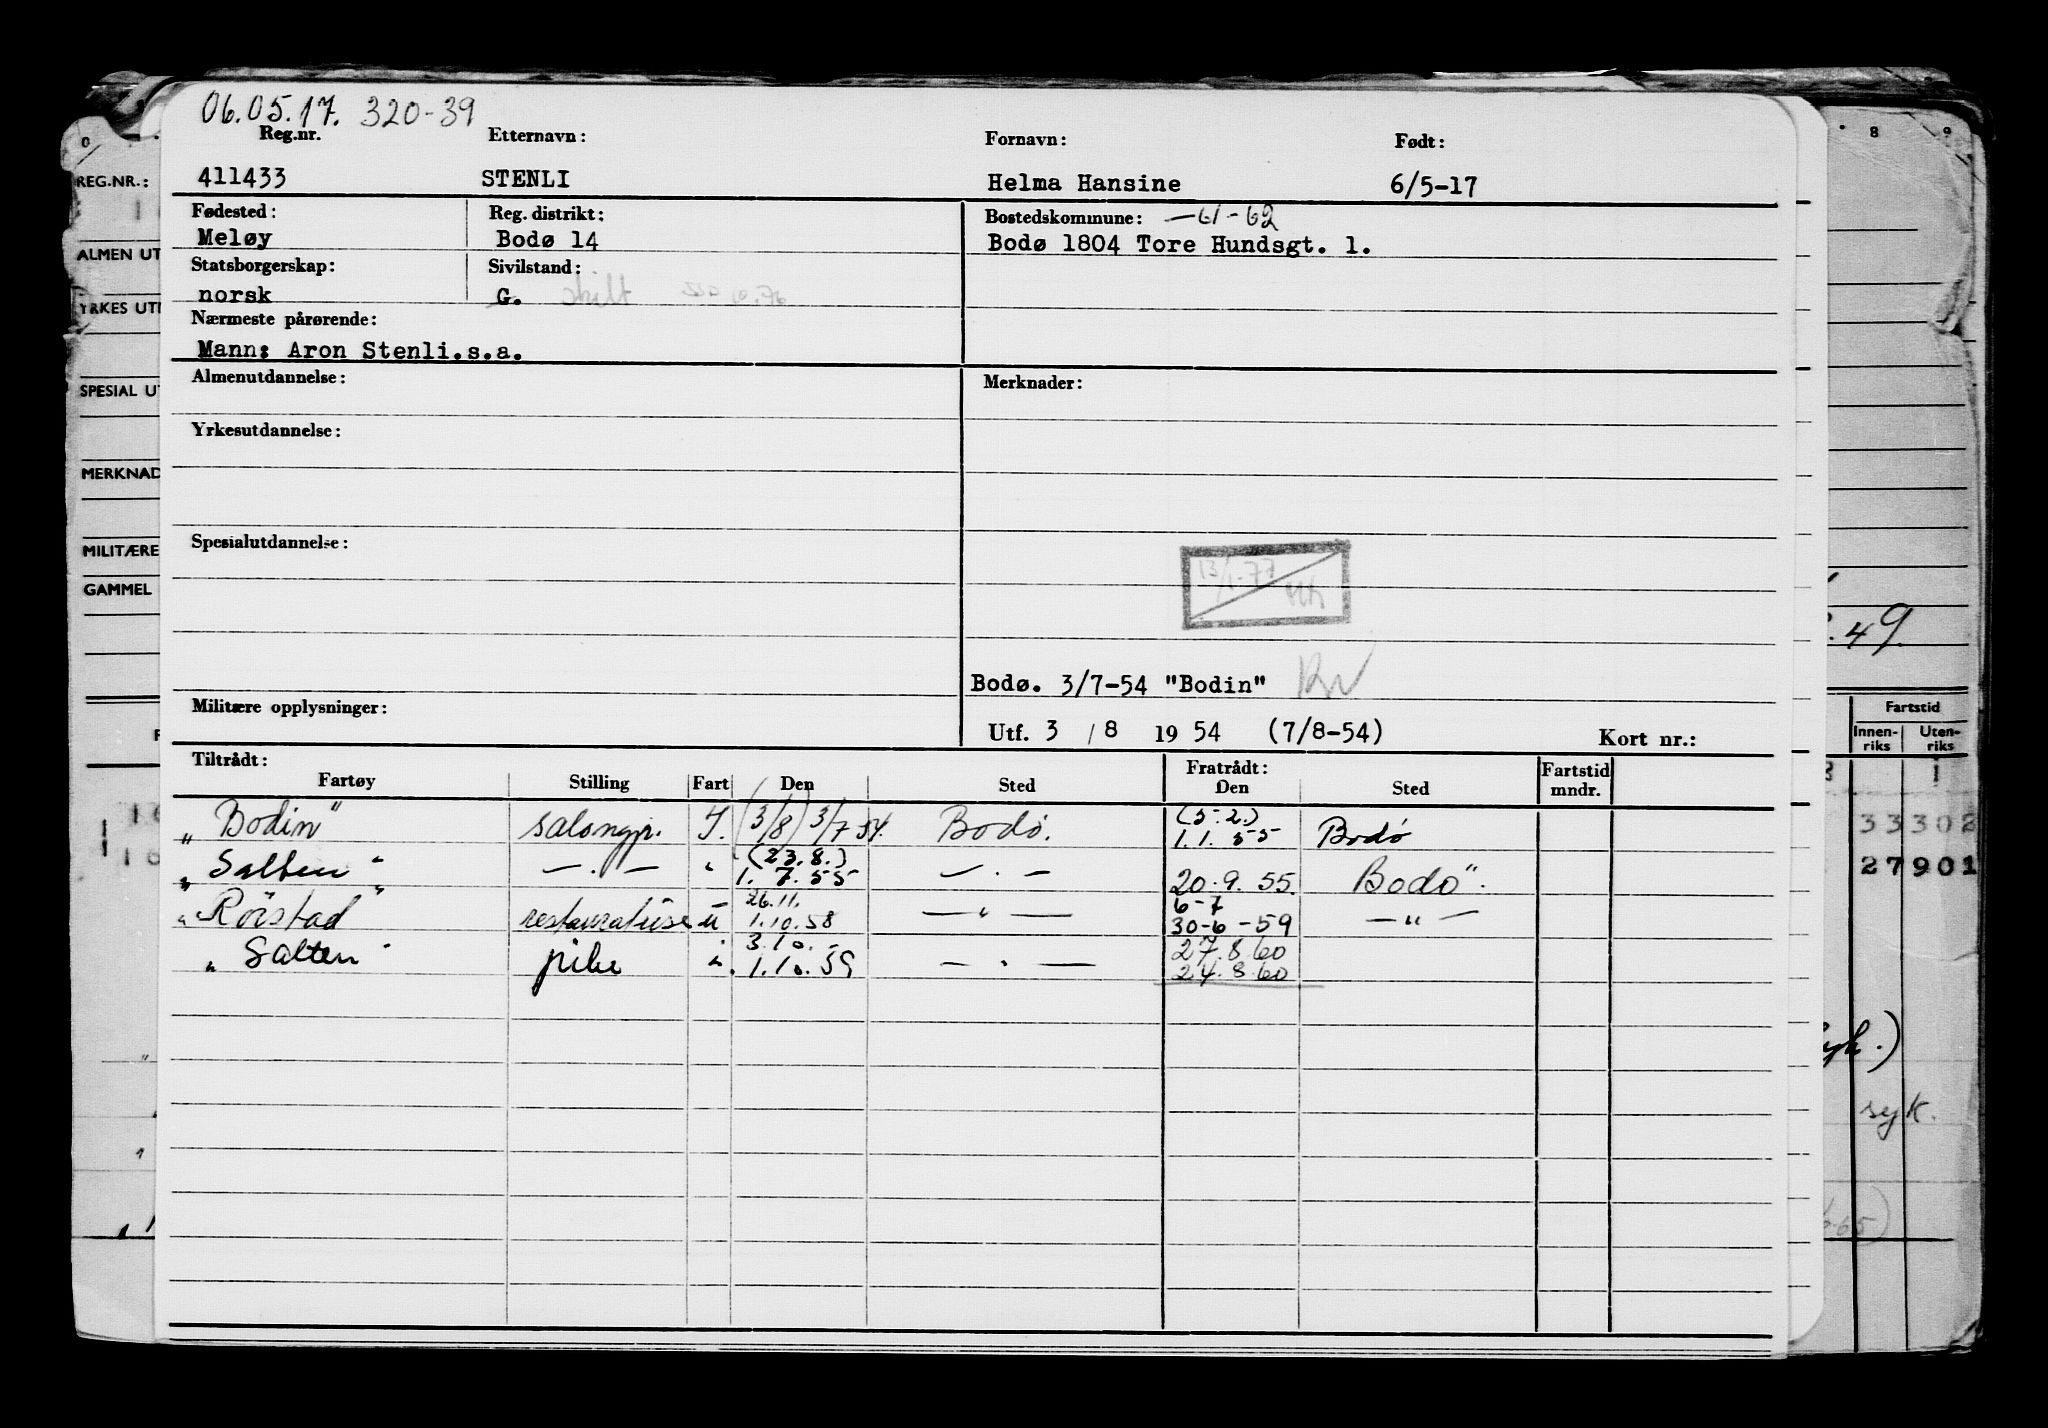 06.05.17. 320-39
Reg.nr. Etternavn: Fornavn: Født:
411433 STENLI Helma Hansine 6/5-17
Fødested: Reg. distrikt: Bostedskommune: —61-62
Meløy Bodø 14 Bodø 1804 Tore Hundsgt. 1.
Statsborgerskap: Sivilstand:
norsk G. skilt
Nærmeste pårørende:
Mann: Aron Stenli.s.a.
Almenutdannelse: Merknader:
Yrkesutdannelse:
Spesialutdannelse:
13/1-77
Bodø. 3/7-54 "Bodin"
Militære opplysninger:
Utf. 3 / 8 19 54 (7/8-54) Kort nr.:
Tiltrådt: Fratrådt: Fartstid
Fartøy Stilling Fart Den Sted Den Sted mndr.
(5.2.)
"Bodin" salongp. I. (3/8) 3/7 54. Bodø. 1.1.55 Bodø
(23.8.)
"Salten" — . — " 1.7.55 — . — 20.9.55. Bodö.
26.11. 6-7
"Röistad" restauratrise u 1.10.58 — " — 30-6-59 — " —
3.10. 27.8.60
"Salten" pike ". 1.10.59 — . — 24.8.60
0 8 9
REG.NR.:
ALMEN UT
YRKES UT
SPESIAL UT
MERKNAD
MILITÆRE
GAMMEL
.49.
Fartstid
Innen-riks Uten-riks
33302
27901
syk.